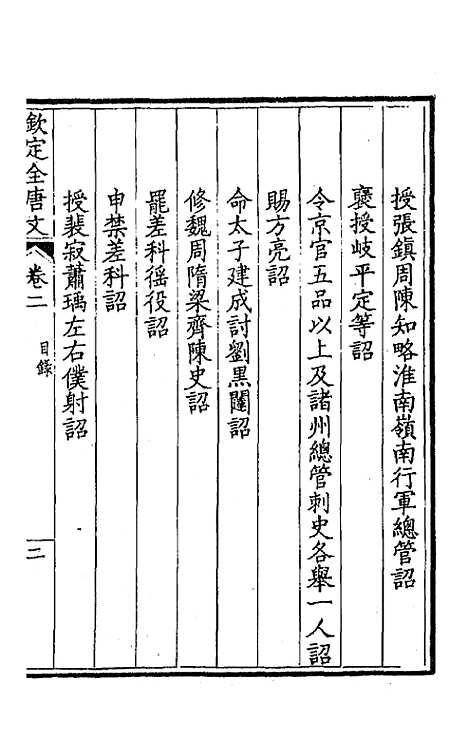 授張鎮周陳知略淮南嶺南行軍總管詔
襃授岐平定等詔
令京官五品以上及諸州總管刺史各舉一人詔
賜方亮詔
命太子建成討劉黑闥詔
修魏周隋梁齊陳史詔
罷差科徭役詔
申禁差科詔
授裴寂蕭瑀左右僕射詔
欽定全唐文 卷二 目錄 二